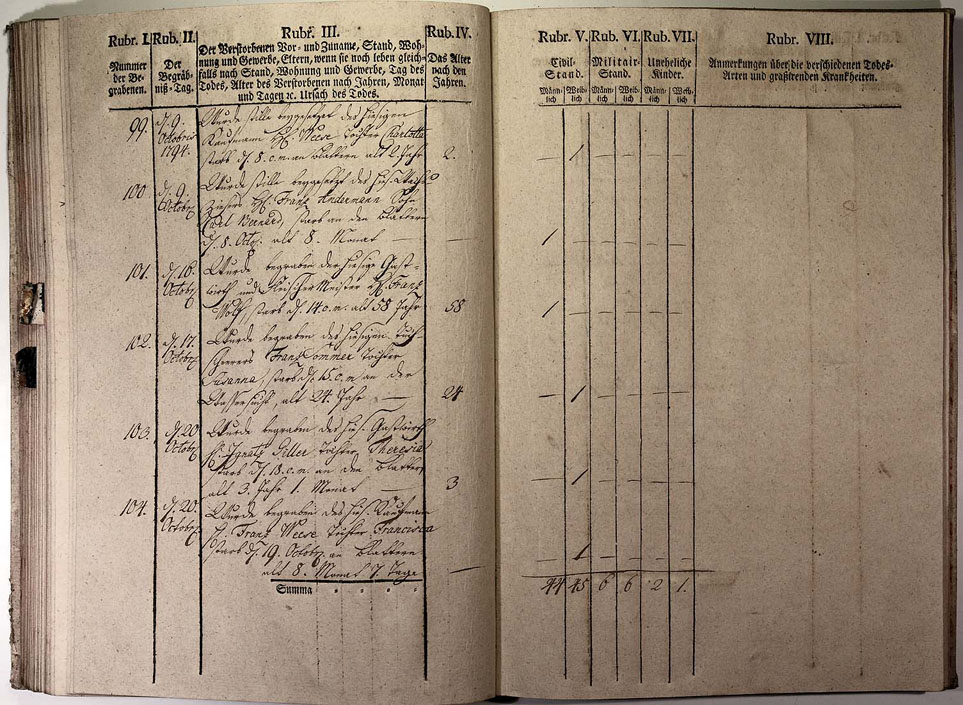 Rubr. I.
Nummer
der Be-
grabenen.
Rub. II.
Der
Begräb-
niß-Tag.
Rubr. III.
Der Verstorbenen Vor- und Zuname, Stand, Woh-
nung und Gewerbe, Eltern, wenn sie noch leben gleich-
falls nach Stand, Wohnung und Gewerbe, Tag des
Todes, Alter des Verstorbenen nach Jahren, Monat
und Tagen ꝛc. Ursach des Todes.
Rub. IV.
Das Alter
nach den
Jahren.
Rubr. V.
Civil-
Stand.
Männ-
lich
Weib-
lich
Rub. VI.
Militair-
Stand.
Männ-
lich
Weib-
lich
Rub. VII.
Uneheliche
Kinder.
Männ-
lich
Weib-
lich
Rubr. VIII.
Anmerkungen über die verschiedenen Todes-
Arten und grassirenden Krankheiten.
99.
d. 9.
Octobris
1794.
Wurde stille beygesetzt des hiesigen
Kaufmann H. Weese Tochter Charlotta
starb d. 8. o. m. an Blattern alt 2. Jahr
2.
— 1 — — — —
100
d. 9.
Octobr
Wurde stille beygesetzt des hies.
H. Franz Andermann Sohn
Carl Bernard, starb an den Blattern
d. 8. Octb. alt 8. Monat — —
1 — — — — —
101.
d. 16.
Octobr
Wurde begraben der hiesige Gast-
wirth und Fleischer Meister H. Franz
Wolf, starb d. 14. o. m. alt 58 Jahr
58
1 — — — — —
102.
d. 17.
Octobr
Wurde begraben des hiesigen Tuch-
scherers Franz Sommer Tochter
Susanna, starb d. 15. o. m. an der
Wassersucht, alt 24. Jahr —
24
— 1 — — — —
103.
d. 20
Octobr
Wurde begraben des hies. Gastwirth
H. Ignatz Tochter Theresia
starb d. 18. o. m. an den Blattern
alt 3. Jahr 1. Monat —
3
— 1 — — — —
104.
d. 20.
Octobr
Wurde begraben des hies. Kaufmann
H. Franz Weese Tochter Francisca
starb d. 19. Octobr an Blattern
alt 8. Monat 7. Tage —
— 1 — — — —
Summa
44 45 6 6 2 1.